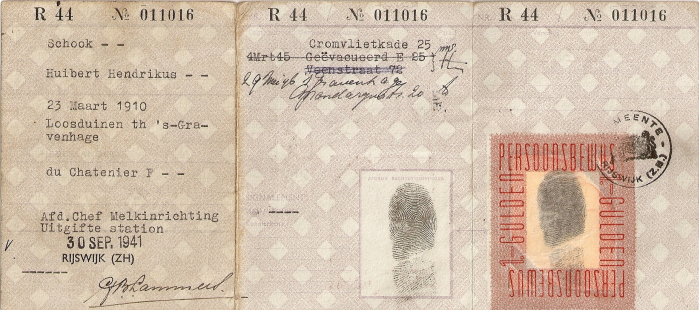 R 44 № 011016
Schook - -
Huibert Hendrikus - -
23 Maart 1910
Loosduinen th 's-Gra-
venhage
du Chatenier P - -
Afd.Chef Melkinrichting
Uitgifte station
30 SEP. 1941
RIJSWIJK (ZH)
R 44 № 011016
Cromvlietkade 25
4Mrt45 Geëvacueerd E 25
Veenstraat 72
's Gravenhage
20
R 44 № 011016
GEMEENTE
RIJSWIJK (Z.H.)
PERSOONSBEWIJS
1 GULDEN
1 GULDEN
PERSOONSBEWIJS